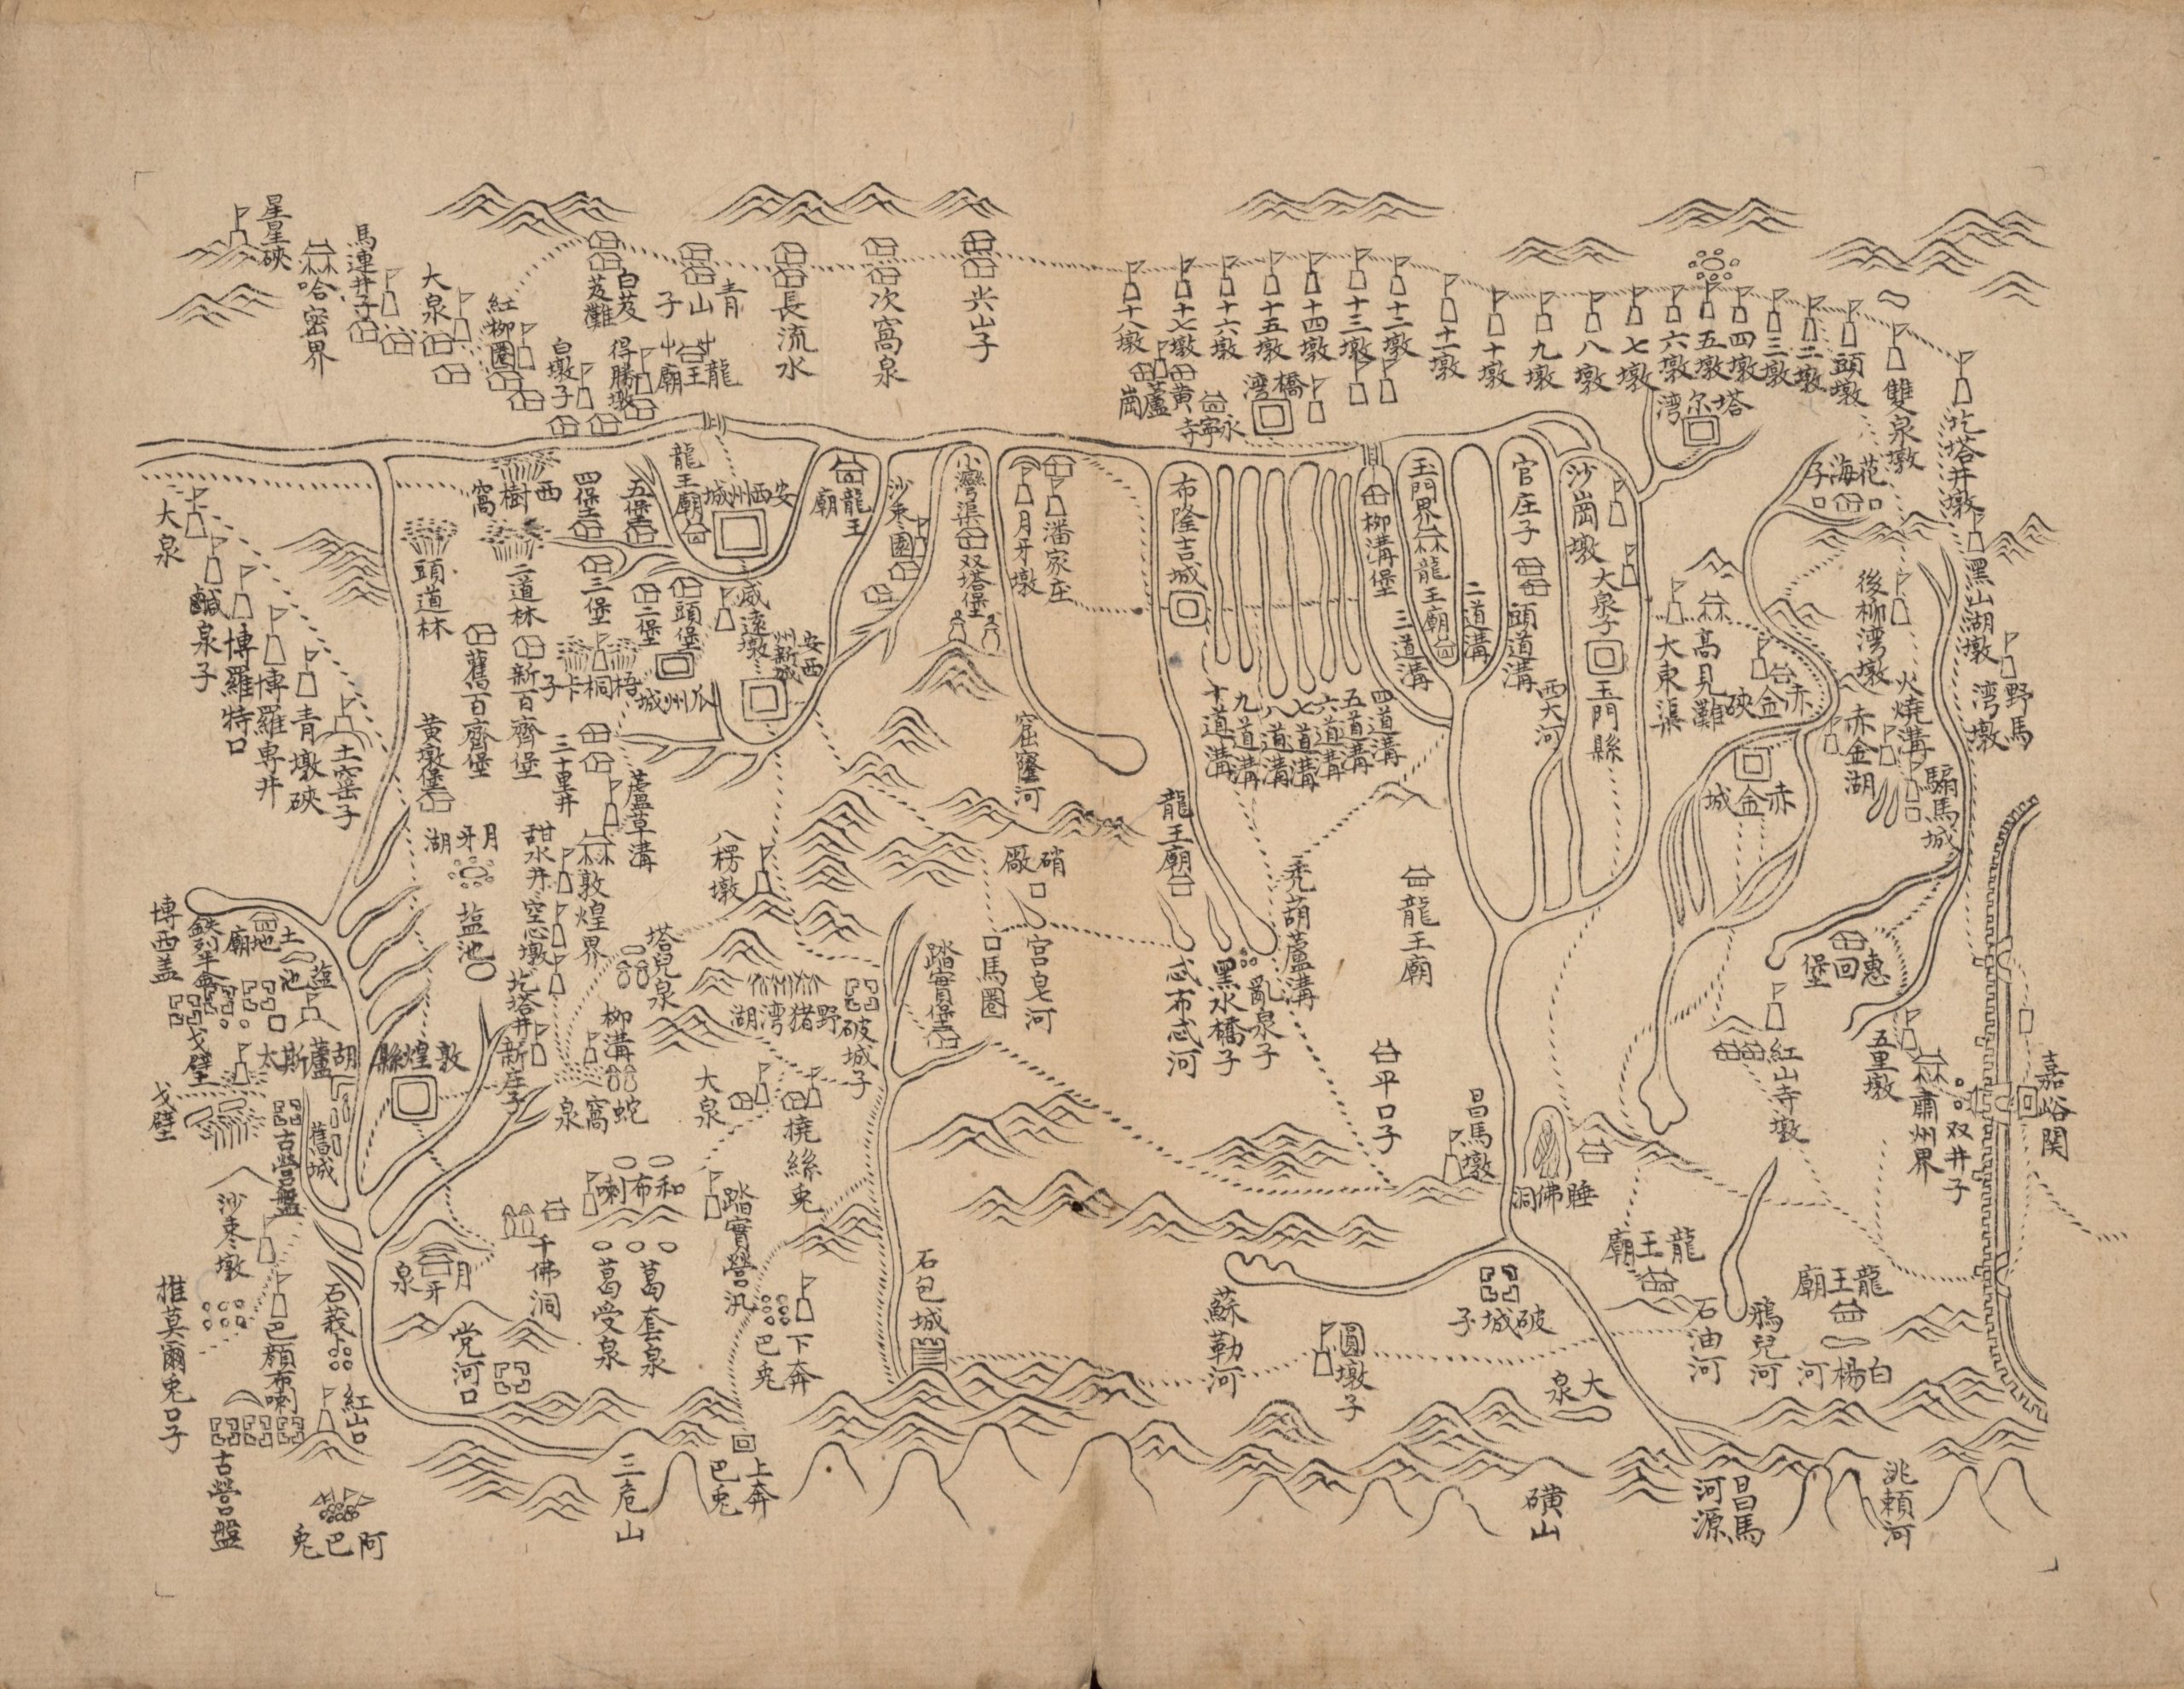 星星硤
哈密界
馬連井子
大泉
紅柳圈
白墩子
白芨芨灘
得勝墩
青山子
龍王廟
長流水
次窩泉
尖山子
十八墩
十七墩
十六墩
十五墩
十四墩
十三墩
十二墩
十一墩
十墩
九墩
八墩
七墩
六墩
五墩
四墩
三墩
二墩
頭墩
雙泉墩
圪塔井墩
黃蘆崗
永寧寺
橋湾
塔尔湾
花海子
大泉
鹹泉子
博羅特口
博羅専井
青墩硤
土窑子
頭道林
二道林
西樹窩
四堡
五堡
三堡
二堡
頭堡
龍王廟
安西州城
龍王廟
沙枣園
小灣渠
双塔堡
月牙墩
潘家庄
布隆吉城
柳溝堡
玉門界
龍王廟
官庄子
沙崗墩
大泉子
玉門縣
頭道溝
二道溝
三道溝
四道溝
五道溝
六道溝
七道溝
八道溝
九道溝
十道溝
西大河
大東渠
高見灘
赤金硤
後柳湾墩
黑山湖墩
野馬湾墩
火燒溝
赤金湖
赤金城
騸馬城
威遠墩
安西州新城
瓜州城
梧桐卡子
新百齊堡
舊百齊堡
黄墩堡
三十里井
蘆草溝
甜水井
空心墩
敦煌界
月牙湖
塩池
圪塔井
新庄子
塔兒泉
八楞墩
窟窿河
硝廠
馬圈
宫皂河
踏實堡
野猪湾湖
破城子
柳溝
蛇窩泉
大泉
橈絲兎
龍王廟
黑水橋子
亂泉子
禿葫蘆溝
龍王廟
平口子
昌馬墩
睡佛洞
惠回堡
紅山寺墩
五里墩
肅州界
双井子
嘉峪関
博西盖
土地廟
塩池
戈壁
戈壁
胡蘆斯太
敦煌縣
舊城
古營盤
沙枣墩
推莫爾兎口子
巴顔布喇
古營盤
紅山口
阿巴兎
月牙泉
党河口
千佛洞
和布喇
葛受泉
葛套泉
踏實營汛
下奔巴兎
上奔巴兎
三危山
石包城
蘇勒河
圓墩子
破城子
大泉
龍王廟
石油河
鴉兒河
龍王廟
白楊河
磺山
昌馬河源
洮頼河